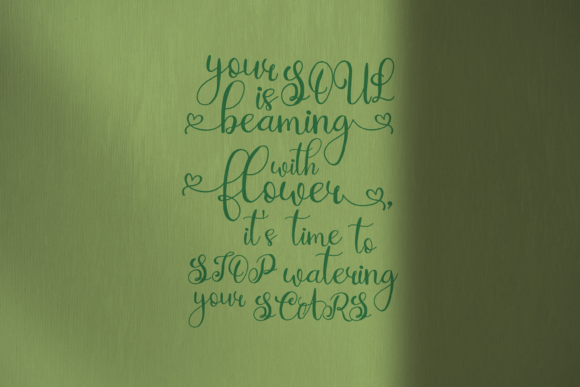 your SOUL
is
beaming
with
flower,
it's time to
STOP watering
your SCARS